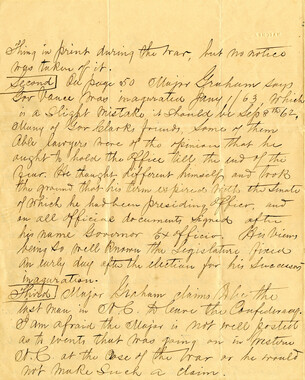 Thing in print during the war, but no notice
was taken of it.
Second On page 50 Major Graham says
Gov Vance was inaugurated Jany 1/63 Which
is a Slight mistake it should be Sep 8th 62,
Many of Gov Clarks friends, Some of them
Able lawyers were of the opinion that he
ought to hold the Office till the end of the
Year. He thought different himself, and took
the ground that his term expired with the Senate
of which he had been presiding Officer, and
on all Official documents signed after
his name Governor Ex Officer. His views
being so well Known the Legislature fixed
an early day after the election for his Successors
inauguration.
Third Major Graham claims to be the
last man in N.C. to leave the Confederacy.
I am afraid the Major is not well posted
as to events that was going on in Western
N.C. at the close of the War or he would
not make such a claim.